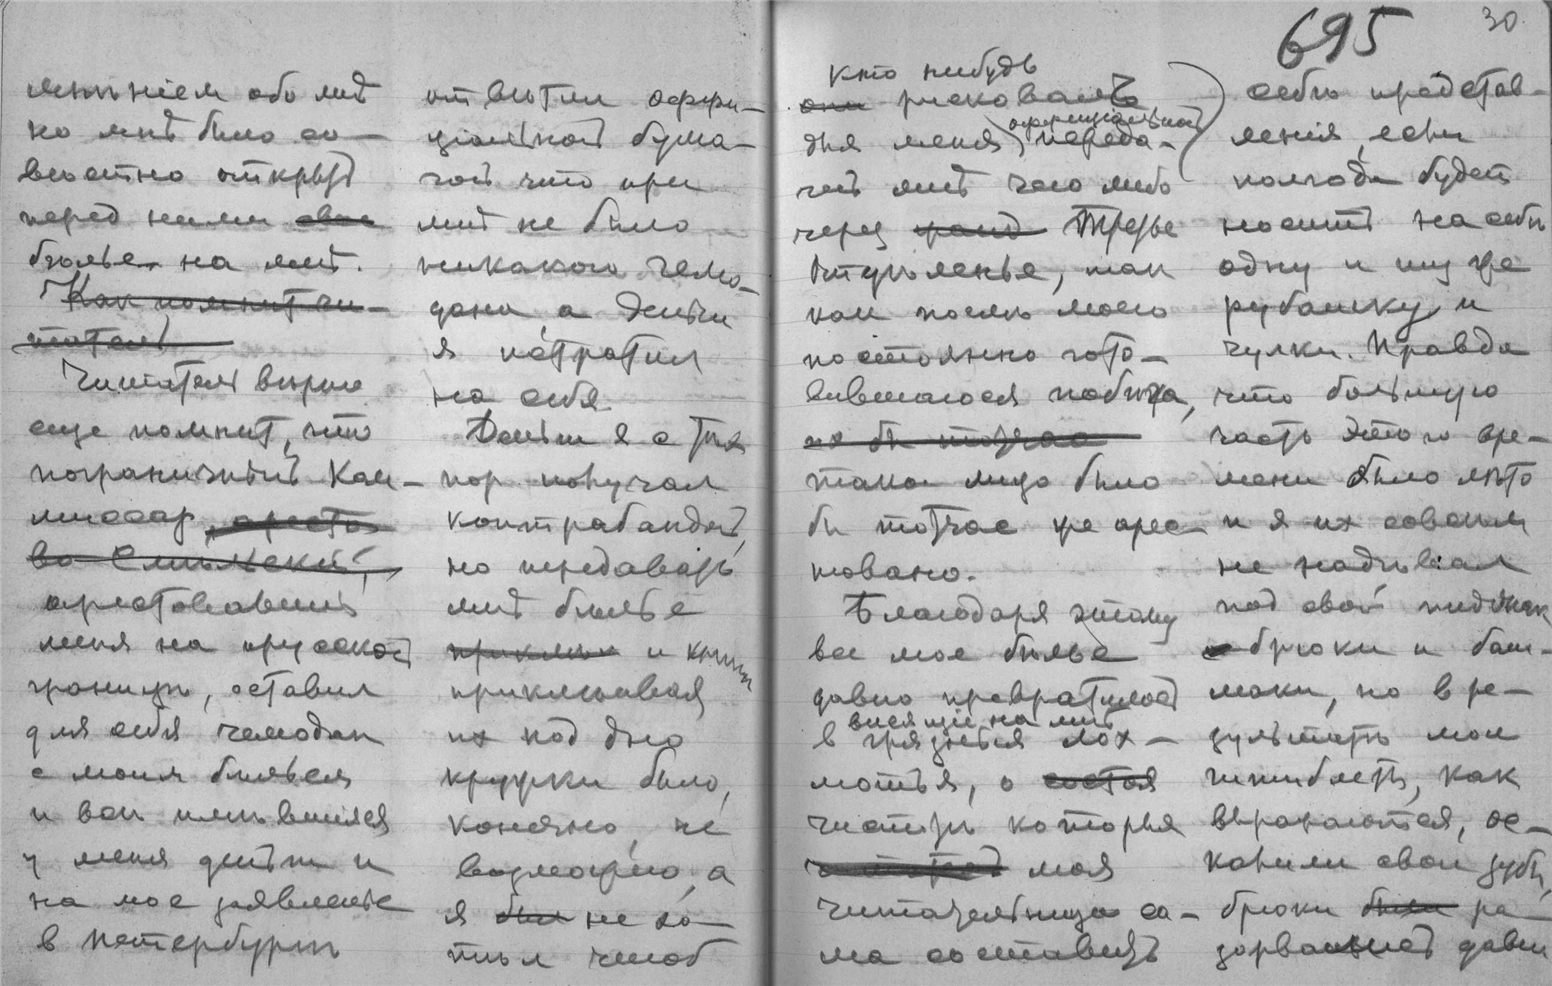 мнѣнiем обо мнѣ
но мнѣ было со-
вѣстно открыть
перед ними свое
бѣлье на мнѣ.
Как помнит чи-
татель
Читатель вѣрно
еще помнит, что
пограничный Ком-
миссар, аресто
во
арестовавший
меня на прусской
границѣ, оставил
для себя чемодан
с моим бѣльем
и всѣ имѣвшiяся
у меня деньги и
на мое заявленье
в Петербургѣ
отвѣтил оффи-
цiальной бума-
гой что при
мнѣ не было
никакого чемо-
дана, а деньги
я потратил
на себя
Деньги я с тѣх
пор получал
контрабандой,
но передавать
мнѣ бѣлье
и книги
приклеивая
их под дно
кружки было,
конечно, не
возможно, а
я был не хо-
тѣл чтоб
695 30
кто нибудь
они рисковалъ
оффицiальной
для меня переда-
чей мнѣ чего либо
через Третье
Отдѣленье, так
как послѣ моего
постоянно гото-
вившагося побѣга,
не бы тотчас
такое лицо было
бы тотчас же арес-
товано.
Благодаря этому
все мое бѣлье
давно превратилось
висящiе на мнѣ
в грязныя лох-
мотья, о состоя
чистотѣ которых
моя
читательница са-
ма составит
себѣ представ-
ленiя, если
полгода будет
носить на себѣ
одну и ту же
рубашку и
чулки. Правда
что большую
часть этого вре-
мени было лѣто
и я их совсѣм
не надѣвал
под свой пиджак
брюки и баш-
маки, но в ре-
зультатѣ мои
штиблеты, как
выражаются, ос-
калили свои зубы,
брюки были ра-
зорвались давно